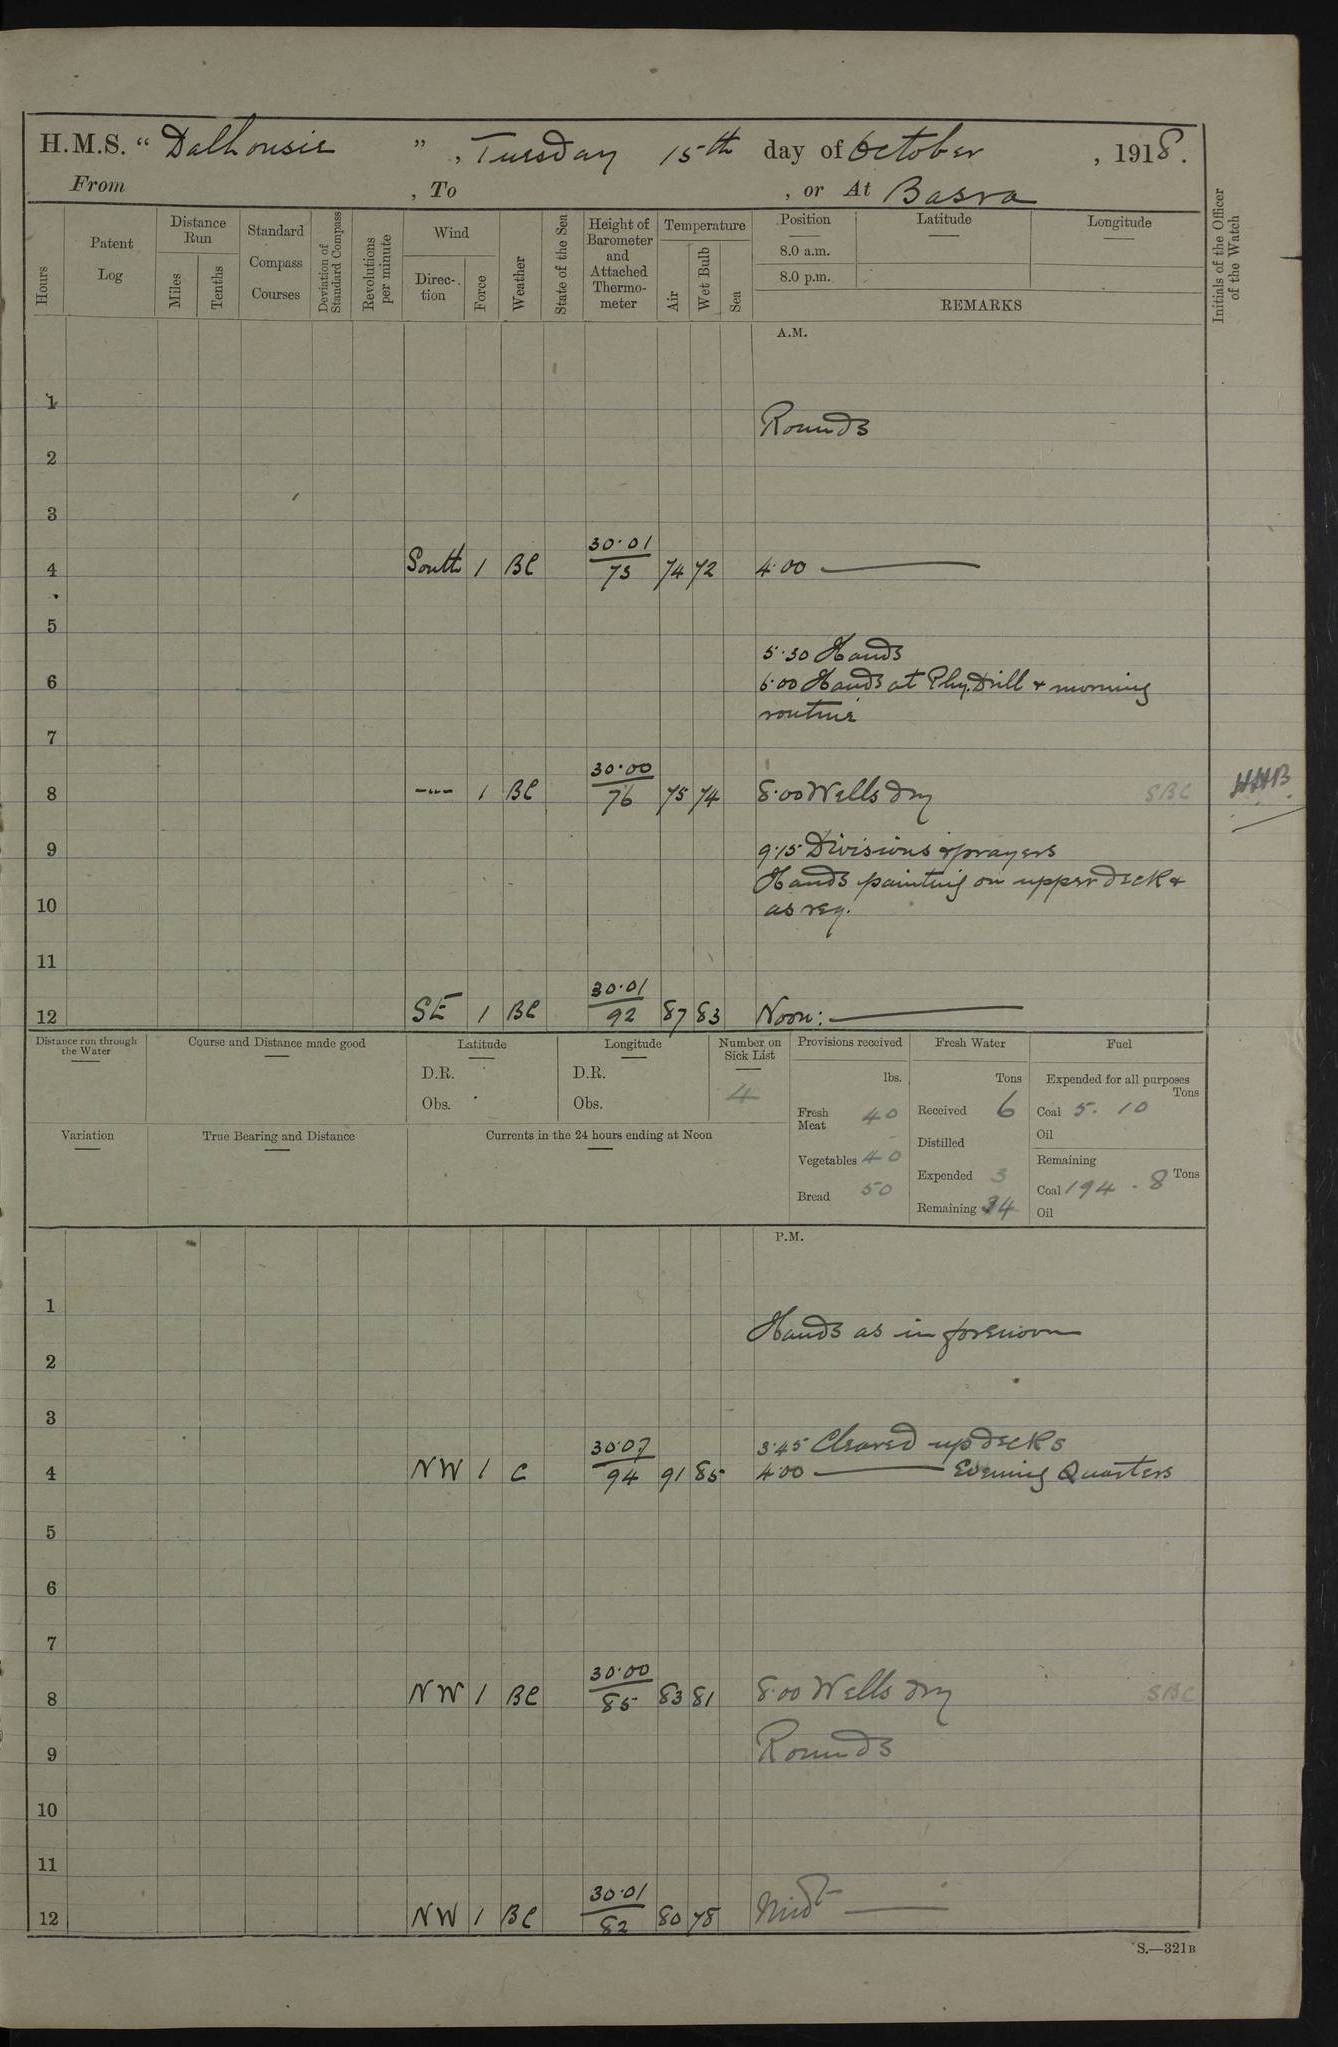 H.M.S. " Dalhousie " , Tuesday 15th day of October , 1918.
From , To , or At Basra
Hours
Patent Log
Distance Run
Miles
Tenths
Standard Compass Courses
Deviation of Standard Compass
Revolutions per minute
Wind
Direc-tion
Force
Weather
State of the Sea
Height of Barometer and Attached Thermo-meter
Temperature
Air
Wet Bulb
Sea
Position
8.0 a.m.
8.0 p.m.
Latitude
Longitude
REMARKS
Initials of the Officer of the Watch
A.M.
1
Rounds
2
3
30·01
4 South 1 BC 73 74 72 4·00 ———
5
5·30 Hands
6 6·00 Hands at Phy. Drill & morning
routine
7
30·00
8 —"— 1 BC 76 75 74 8·00 Wells dry SBC HHB
9 9·15 Divisions & prayers
Hands painting on upper deck &
10 as req.
11
30·01
12 SE 1 BC 92 87 83 Noon: ———
Distance run through the Water
Course and Distance made good
Latitude
D.R.
Obs.
Longitude
D.R.
Obs.
Number on Sick List
4
Provisions received
lbs.
Fresh Meat 40
Vegetables 40
Bread 50
Fresh Water
Tons
Received 6
Distilled
Expended 3
Remaining 34
Fuel
Expended for all purposes
Tons
Coal 5. 10
Oil
Remaining
Coal 194 . 8 Tons
Oil
Variation
True Bearing and Distance
Currents in the 24 hours ending at Noon
P.M.
1
Hands as in forenoon
2
3
30·07 3·45 Cleared up decks
4 NW 1 C 94 91 85 4·00 ——— Evening Quarters
5
6
7
30·00
8 NW 1 BC 85 83 81 8·00 Wells dry SBC
9 Rounds
10
11
30·01
12 NW 1 BC 82 80 78 Midt ———
S.—321B